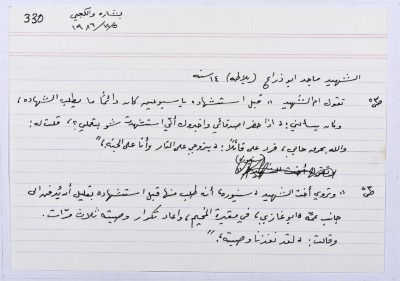 330
بشاره والكعبي
١٩٨٦/١٢/٥
الشهيد ماجد ابو ذراع (بلاطه) ١٤ سنة
تقول ام الشهيد " قبل استشهاده باسبوعين كان دائماً ما يطلب الشهاده،
وكان يسألني: اذا حضر اصدقائي واخبروك أني استشهدت شو بتعملي؟، قلت له:
والله بحرق حالي، فرد علي قائلاً: بتروحي على النار وأنا على الجنة،"
ص٣ " وتروي أخت الشهيد سنيوره أنه طلب منها قبل استشهاده بقليل أن يدفن الى
جانب عمّه ابو غازي، في مقبرة المخيم، واعاد تكرار وصيته ثلاث مرّات.
وقالت: لقد نفذنا وصيته."